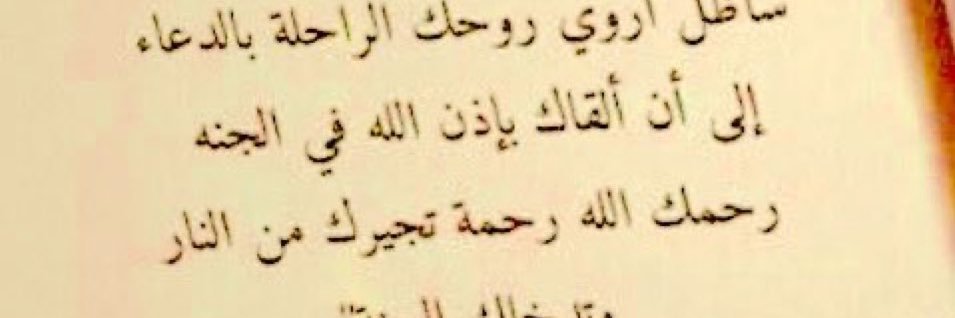 سأظل أروي روحك الراحلة بالدعاء
إلى أن ألقاك بإذن الله في الجنه
رحمك الله رحمة تجيرك من النار